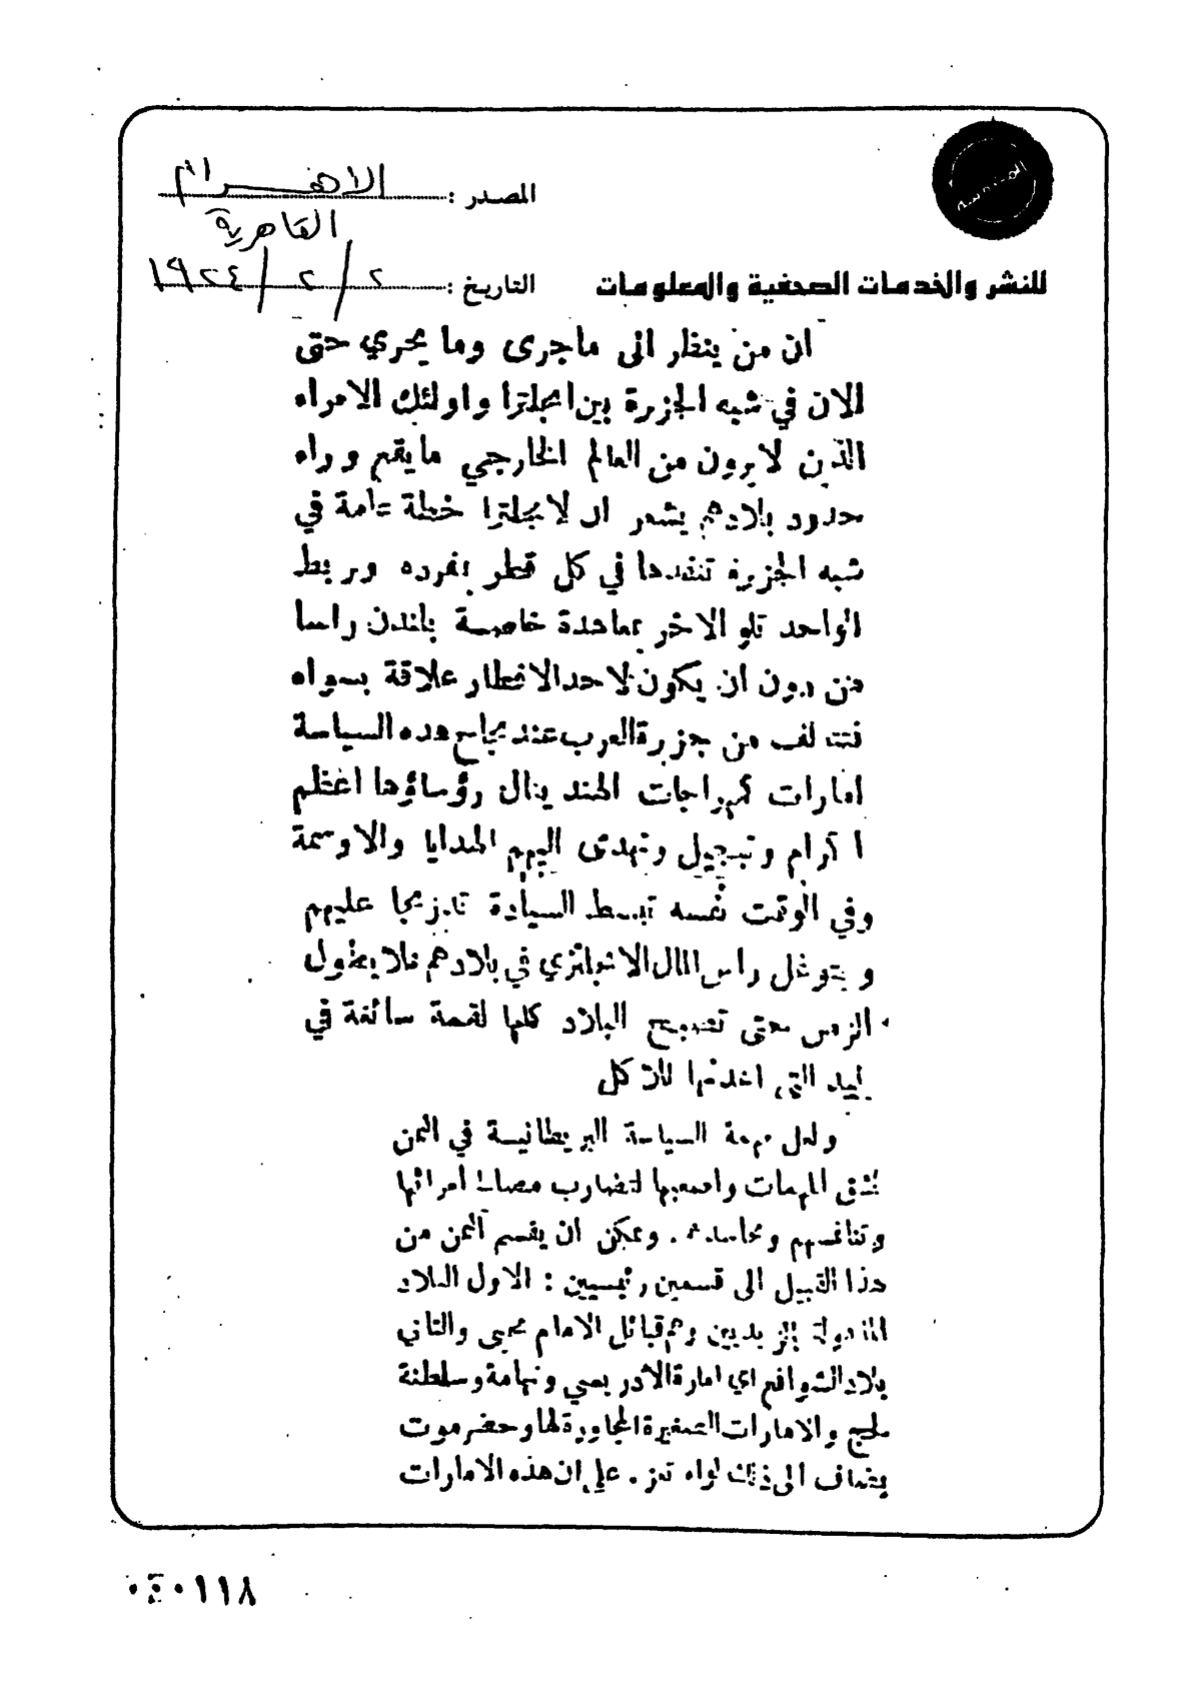 المصدر : الاهرام
القاهرية
التاريخ : ٢ / ٢ / ١٩٢٤
للنشر والخدمات الصحفية والمعلومات
ان من ينظر الى ماجرى وما يجري حتى
الان في شبه الجزيرة بين انجلترا واولئك الامراء
الذين لا يرون من العالم الخارجي مايقع وراء
حدود بلادهم يشعر ان لانجلترا خطة عامة في
شبه الجزيرة تنفذها في كل قطر بمفرده وربط
الواحد تلو الاخر بمعاهدة خاصة بلندن راسا
من دون ان يكون لاحد الاقطار علاقة بسواه
فتتألف من جزيرة العرب عند نجاح هذه السياسة
امارات كمهراجات الهند ينال رؤساؤها اعظم
اكرام وتبجيل وتهدى اليهم الهدايا والاوسمة
وفي الوقت نفسه تبسط السيادة تدريجا عليهم
ويتوغل راس المال الانجليزي في بلادهم فلا يطول
الزمن حتى تصبح البلاد كلها لقمة سائغة في
اليد التي اعدتها للاكل
ولعل مهمة السياسة البريطانية في اليمن
اشق المهمات واصعبها لتضارب مصالح امرائها
وتنافسهم وتحاسدهم . ويمكن ان يقسم اليمن من
هذا القبيل الى قسمين رئيسيين : الاول البلاد
الزيديين وهم قبائل الامام يحيى والثاني
بلاد الشوافع اي امارة الادريسي وتهامة وسلطنة
لحج والامارات الصغيرة المجاورة لها وحضرموت
يضاف الى ذلك لواء تعز . على ان هذه الامارات
٠٤٠١١٨